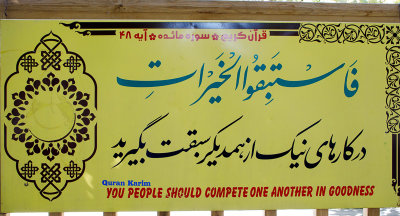 قرآن کریم ✿ سوره مائده ✿ آیه ۴۸
فَاسْتَبِقُوا الْخَيْرَاتِ
در کارهای نیک از همدیگر سبقت بگیرید
Quran Karim
YOU PEOPLE SHOULD COMPETE ONE ANOTHER IN GOODNESS